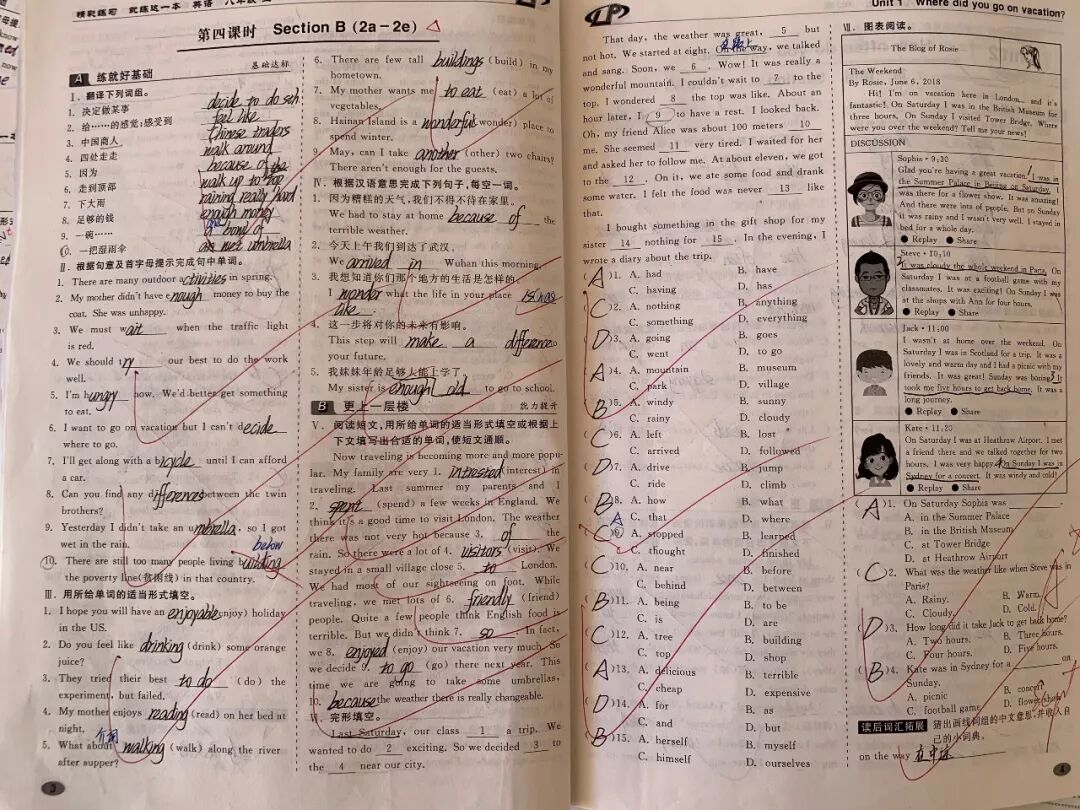 精彩练习 就练这一本 英语 八年级
第四课时 Section B (2a－2e)
A 练就好基础 基础达标
Ⅰ. 翻译下列词组。
1. 决定做某事 decide to do sth
2. 给……的感觉;感受到 feel like
3. 中国商人 Chinese traders
4. 四处走走 walk around
5. 因为 because of the
6. 走到顶部 walk up to top
7. 下大雨 raining really hard
8. 足够的钱 enough money
9. 一碗…… a bowl of
10. 一把湿雨伞 wet umbrella
Ⅱ. 根据句意及首字母提示完成句中单词。
1. There are many outdoor activities in spring.
2. My mother didn't have enough money to buy the
coat. She was unhappy.
3. We must wait when the traffic light
is red.
4. We should try our best to do the work
well.
5. I'm hungry now. We'd better get something
to eat.
6. I want to go on vacation but I can't decide
where to go.
7. I'll get along with a bicycle until I can afford
a car.
8. Can you find any differences between the twin
brothers?
9. Yesterday I didn't take an umbrella, so I got
wet in the rain.
below
10. There are still too many people living building
the poverty line(贫困线) in that country.
Ⅲ. 用所给单词的适当形式填空。
1. I hope you will have an enjoyable (enjoy) holiday
in the US.
2. Do you feel like drinking (drink) some orange
juice?
3. They tried their best to do (do) the
experiment, but failed.
4. My mother enjoys reading (read) on her bed at
night.
介词
5. What about walking (walk) along the river
after supper?
3
6. There are few tall buildings (build) in my
hometown.
7. My mother wants me to eat (eat) a lot of
vegetables.
8. Hainan Island is a wonderful (wonder) place to
spend winter.
9. May, can I take another (other) two chairs?
There aren't enough for the guests.
Ⅳ. 根据汉语意思完成下列句子,每空一词。
1. 因为糟糕的天气,我们不得不待在家里。
We had to stay at home because of the
terrible weather.
2. 今天上午我们到达了武汉。
We arrived in Wuhan this morning.
3. 我想知道你们那个地方的生活是怎样的。
I wonder what the life in your place is
like.
4. 这一步将对你的未来有影响。
This step will make a difference to
your future.
5. 我妹妹年龄足够大能上学了。
My sister is enough old to go to school.
B 更上一层楼 能力提升
Ⅴ. 阅读短文,用所给单词的适当形式填空或根据上
下文填写出合适的单词,使短文通顺。
Now traveling is becoming more and more popu-
lar. My family are very 1. intrested (interest) in
traveling. Last summer my parents and I
2. spent (spend) a few weeks in England. We
think it's a good time to visit London. The weather
there was not very hot because 3. of the
rain. So there were a lot of 4. visitors (visit). We
stayed in a small village close 5. to London.
We had most of our sightseeing on foot. While
traveling, we met lots of 6. friendly (friend)
people. Quite a few people think English food is
terrible. But we didn't think 7. so. In fact,
we 8. enjoyed (enjoy) our vacation very much. So
we decide 9. to go (go) there next year. This
time we are going to take some umbrellas,
10. because the weather there is really changeable.
Ⅵ. 完形填空。
Last Saturday, our class 1 a trip. We
wanted to do 2 exciting. So we decided 3 to
the 4 near our city.
Unit 1 Where did you go on vacation?
That day, the weather was great, 5 but
not hot. We started at eight. On the way, we talked
and sang. Soon, we 6. Wow! It was really a
wonderful mountain. I couldn't wait to 7 to the
top. I wondered 8 the top was like. About an
hour later, I 9 to have a rest. I looked back.
Oh, my friend Alice was about 100 meters 10
me. She seemed 11 very tired. I waited for her
and asked her to follow me. At about eleven, we got
to the 12. On it, we ate some food and drank
some water. I felt the food was never 13 like
that.
I bought something in the gift shop for my
sister 14 nothing for 15. In the evening, I
wrote a diary about the trip.
(A)1. A. had B. have
C. having D. has
(C)2. A. nothing B. anything
C. something D. everything
(D)3. A. going B. goes
C. went D. to go
(A)4. A. mountain B. museum
C. park D. village
(B)5. A. windy B. sunny
C. rainy D. cloudy
(C)6. A. left B. lost
C. arrived D. followed
(D)7. A. drive B. jump
C. ride D. climb
(B)8. A. how B. what
C. that D. where
A
(C)9. A. stopped B. learned
C. thought D. finished
(C)10. A. near B. before
C. behind D. between
(B)11. A. being B. to be
C. is D. are
(C)12. A. tree B. building
C. top D. shop
(A)13. A. delicious B. terrible
C. cheap D. expensive
(D)14. A. for B. as
C. and D. but
(B)15. A. herself B. myself
C. himself D. ourselves
Ⅶ. 图表阅读。
The Blog of Rosie
The Weekend
By Rosie, June 6, 2018
Hi! I'm on vacation here in London... and it's
fantastic! On Saturday I was in the British Museum for
three hours. On Sunday I visited Tower Bridge. Where
were you over the weekend? Tell me your news!
DISCUSSION
Sophia • 9:30
Glad you're having a great vacation. 1 I was in
the Summer Palace in Beijing on Saturday. I
was there for a flower show. It was amazing!
And there were lots of people. But on Sunday
it was rainy and I wasn't very well. I stayed in
bed for a whole day.
● Replay ● Share
Steve • 10:10
2 It was cloudy the whole weekend in Paris. On
Saturday I was at a football game with my
classmates. It was exciting! On Sunday I was
at the shops with Ann for four hours.
● Replay ● Share
Jack • 11:00
I wasn't at home over the weekend. On
Saturday I was in Scotland for a trip. It was a
lovely and warm day and I had a picnic with my
friends. It was great! Sunday was boring. 3 It
took me five hours to get back home. It was a
long journey.
● Replay ● Share
Kate • 11:20
On Saturday I was at Heathrow Airport. I met
a friend there and we talked together for two
hours. I was very happy. 4 On Sunday I was in
Sydney for a concert. It was windy and cold!
● Replay ● Share
(A)1. On Saturday Sophia was ____.
A. in the Summer Palace
B. in the British Museum
C. at Tower Bridge
D. at Heathrow Airport
(C)2. What was the weather like when Steve was in
Paris?
A. Rainy. B. Warm.
C. Cloudy. D. Cold.
(D)3. How long did it take Jack to get back home?
A. Two hours. B. Three hours.
C. Four hours. D. Five hours.
(B)4. Kate was in Sydney for a ____ on
Sunday.
A. picnic B. concert
C. football game D. flower show
读后词汇拓展 猜出画线词组的中文意思,并收入自
己的小词典。
on the way 在中途
4